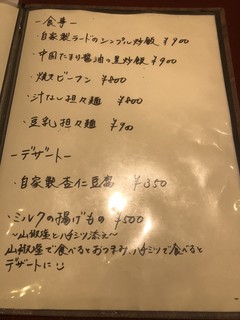 －食事－
・自家製ラードのシンプル炒飯 ¥900
・中国たまり醤油の黒炒飯 ¥900
・焼ビーフン ¥800
・汁なし担々麺 ¥800
・豆乳担々麺 ¥900
－デザート－
・自家製杏仁豆腐 ¥350
・ミルクの揚げもの ¥500
～山椒塩とハチミツ添え～
山椒塩で食べるとおつまみ、ハチミツで食べると
デザートに